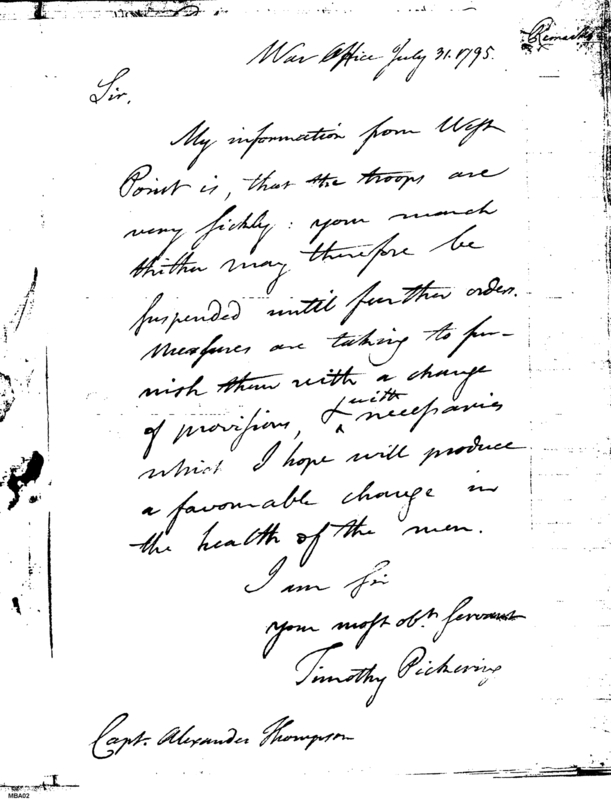 Remarks
War Office July 31. 1795.
Sir,
My information from West
Point is, that the troops are
very sickly: your march
thither may therefore be
suspended until further orders.
Measures are taking to fur-
nish them with a change
of provisions, & with necessaries
which I hope will produce
a favourable change in
the health of the men.
I am Sir
your most obt. Servant
Timothy Pickering
Capt. Alexander Thompson
MBA02